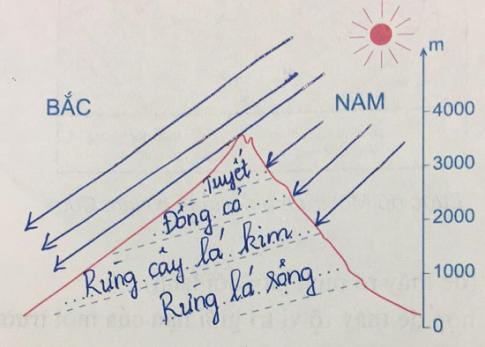 m
BẮC
NAM
4000
3000
2000
1000
0
Tuyết
Đồng cỏ
Rừng cây lá kim
Rừng lá rộng